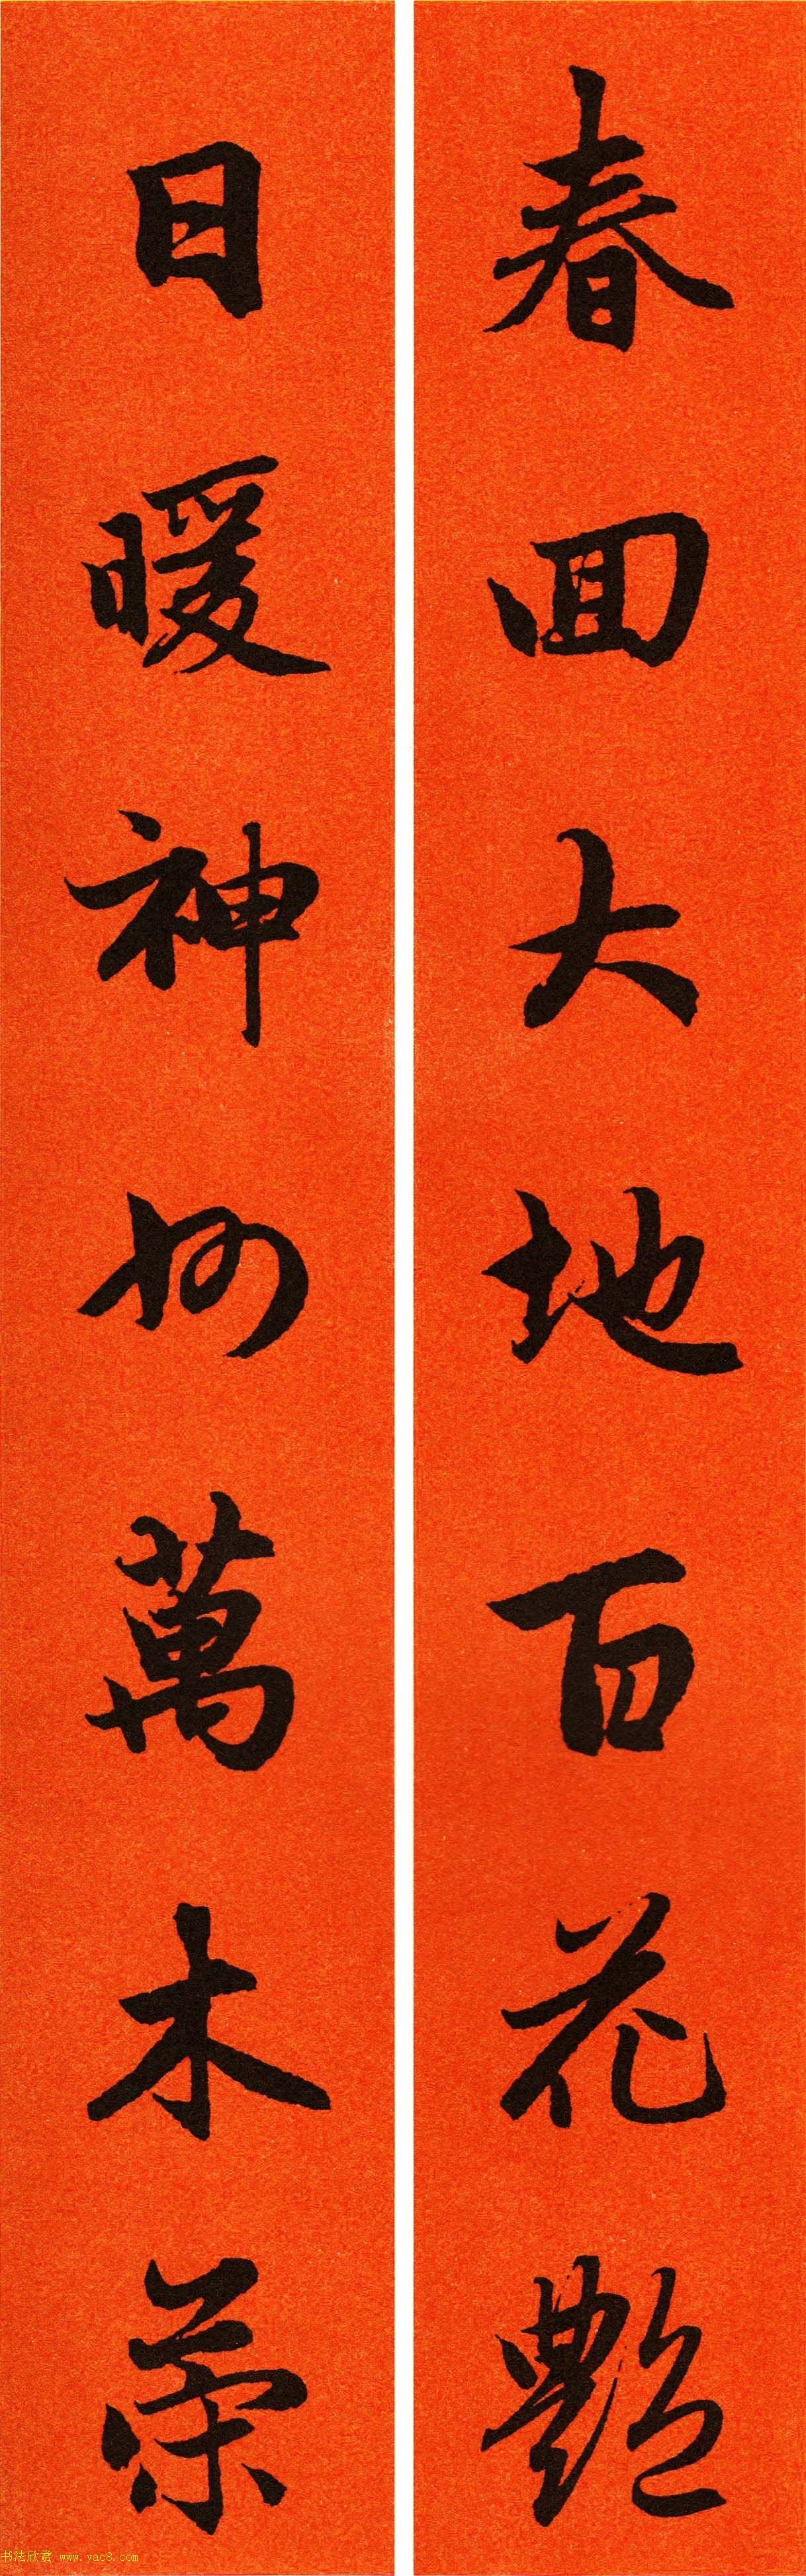 春回大地百花艷
日暖神州萬木荣
书法欣赏 www.yac8.com